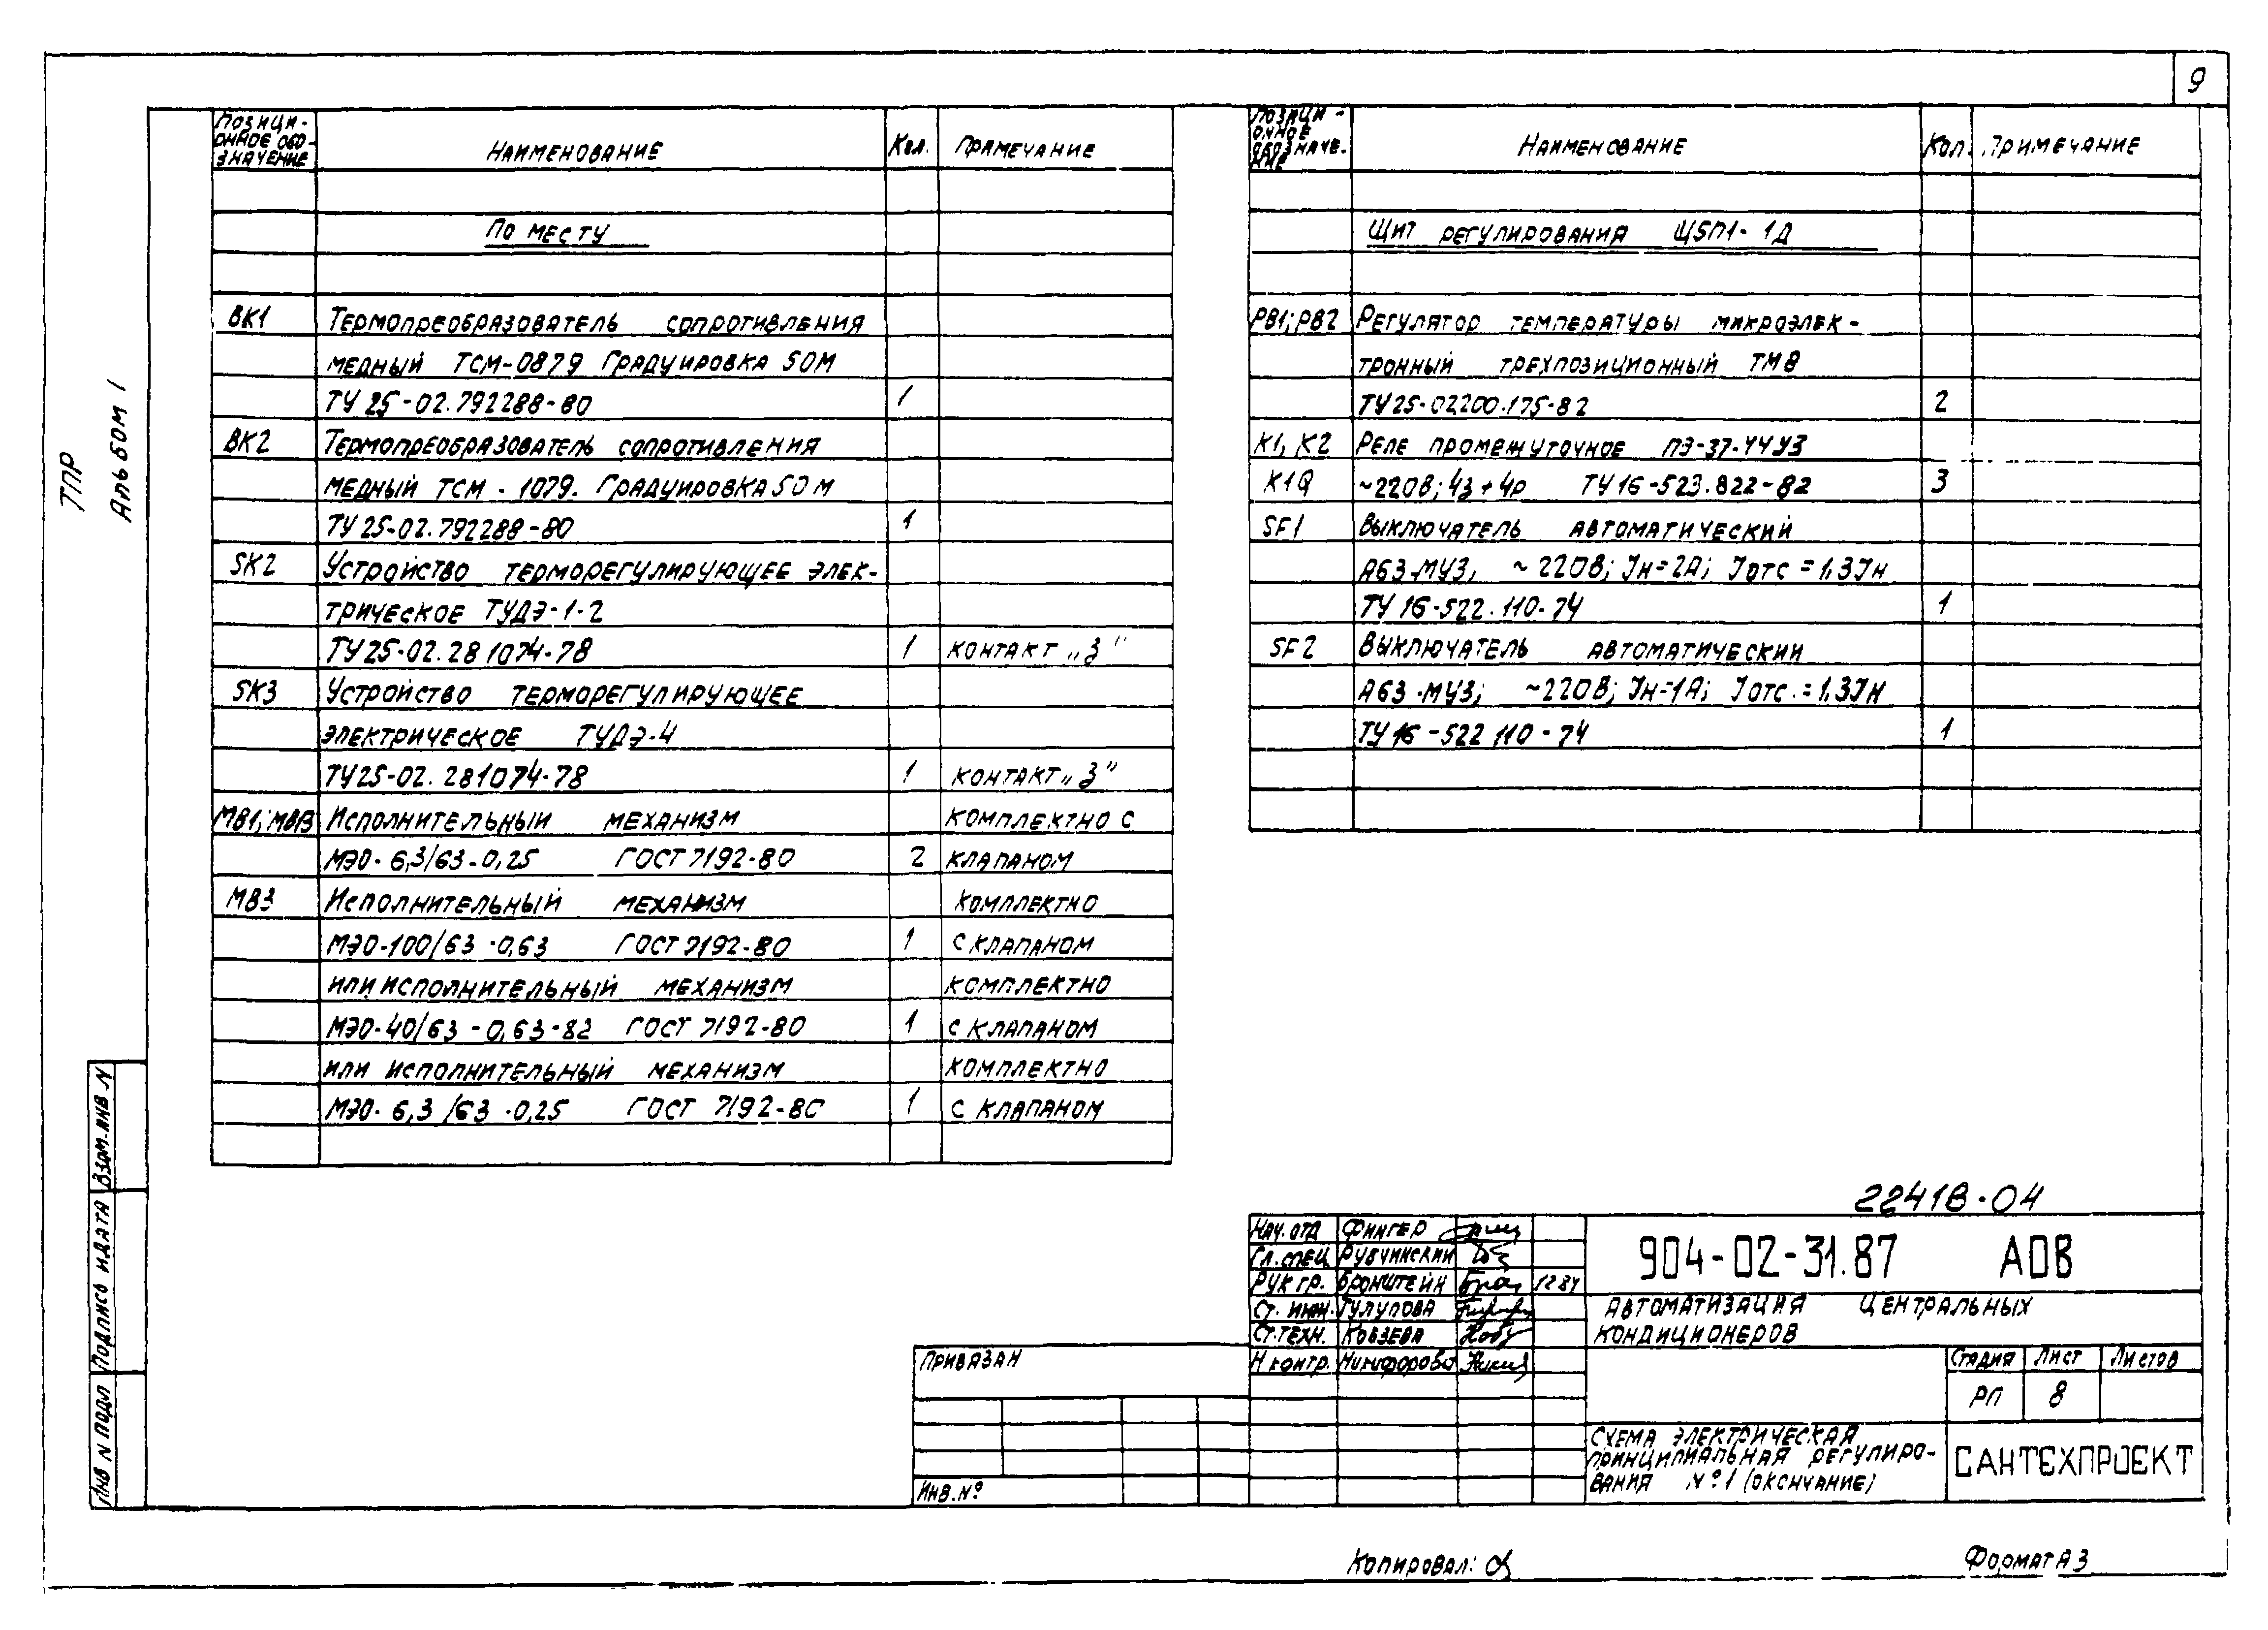 9
ТПР
Альбом 1
Позици-
онное обо-
значение
Наименование
Кол.
Примечание
По месту
ВК1 Термопреобразователь сопротивления
медный ТСМ-0879 Градуировка 50М
ТУ 25-02.792288-80 1
ВК2 Термопреобразователь сопротивления
медный ТСМ-1079. Градуировка 50М
ТУ 25-02.792288-80 1
SK2 Устройство терморегулирующее элек-
трическое ТУДЭ-1-2
ТУ25-02.281074-78 1 контакт „З"
SK3 Устройство терморегулирующее
электрическое ТУДЭ-4
ТУ25-02.281074-78 1 контакт „З"
Исполнительный механизм комплектно с
МЭО-6,3/63-0,25 ГОСТ 7192-80 2 клапаном
МВ3 Исполнительный механизм комплектно
МЭО-100/63-0,63 ГОСТ 7192-80 1 с клапаном
или исполнительный механизм комплектно
МЭО-40/63-0,63-82 ГОСТ 7192-80 1 с клапаном
или исполнительный механизм комплектно
МЭО-6,3/63-0,25 ГОСТ 7192-80 1 с клапаном
Позици-
онное
обозначе-
ние
Наименование
Кол.
Примечание
Щит регулирования Щ5П1-1Д
РВ1; РВ2 Регулятор температуры микроэлек-
тронный трехпозиционный ТМ8
ТУ25-02200.175-82 2
К1, К2 Реле промежуточное ПЭ-37-44У3
К1Q ~220В; 4з+4р ТУ16-523.822-82 3
SF1 Выключатель автоматический
А63-МУ3; ~220В; Jн=2А; Jотс=1,3Jн
ТУ 16-522.110-74 1
SF2 Выключатель автоматический
А63-МУ3; ~220В; Jн=1А; Jотс.=1,3Jн
ТУ16-522 110-74 1
22418-04
Нач. отд Фингер
Гл. спец Рубчинский
Рук гр. Бронштейн
Ст. инж. Тулупова
Ст. техн. Кобзева
Н контр. Никифорова
904-02-31.87 АОВ
Автоматизация центральных
кондиционеров
Стадия Лист Листов
РП 8
Схема электрическая
принципиальная регулиро-
вания №1 (окончание)
САНТЕХПРОЕКТ
Привязан
Инв. №
Взам. инв N
Подпись и дата
Инв N подл
Копировал:
Формат А3